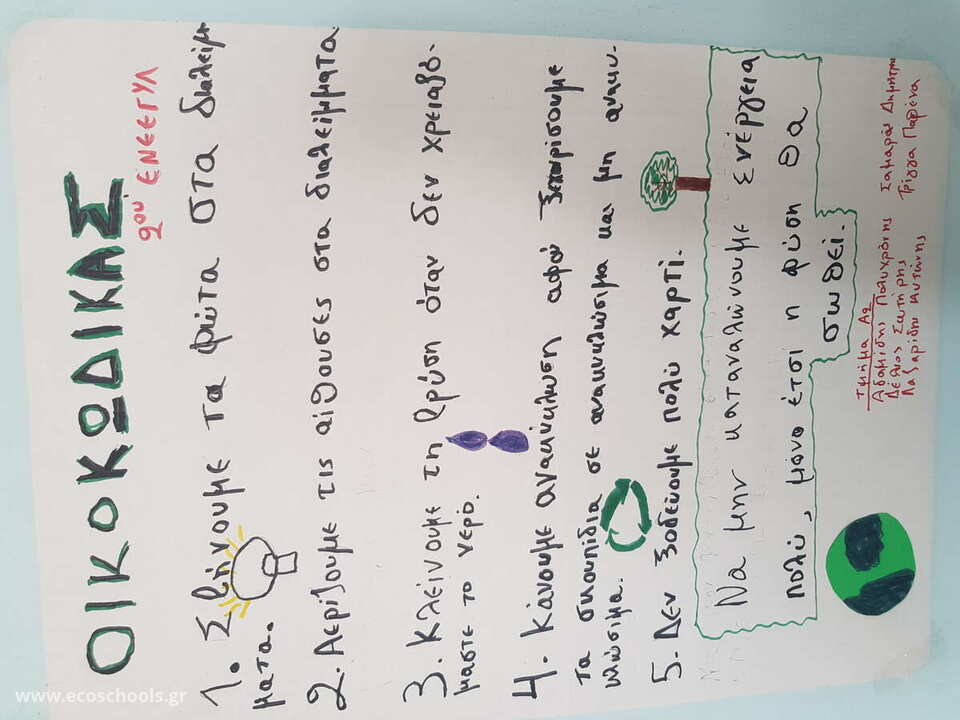 ΟΙΚΟΚΩΔΙΚΑΣ
2ου ΕΝΕΕΓΥΛ
1. Σβήνουμε τα φώτα στα διαλείμ
ματα.
2. Αερίζουμε τις αίθουσες στα διαλείμματα.
3. Κλείνουμε τη βρύση όταν δεν χρειαζό-
μαστε το νερό.
4. Κάνουμε ανακύκλωση αφού ξεχωρίσουμε
τα σκουπίδια σε ανακυκλώσιμα και μη ανακυ-
κλώσιμα.
5. Δεν ξοδεύουμε πολύ χαρτί.
Να μην καταναλώνουμε ενέργεια
πολύ, μόνο έτσι η φύση θα
σωθεί.
Τμήμα Α2
Αδαμίδης Πολυχρόνης
Δέλιος Σωτήρης
Λαζαρίδη Αντώνης
Σαμαράς Δημήτρης
Τρίγγα Παρθένα
www.ecoschools.gr